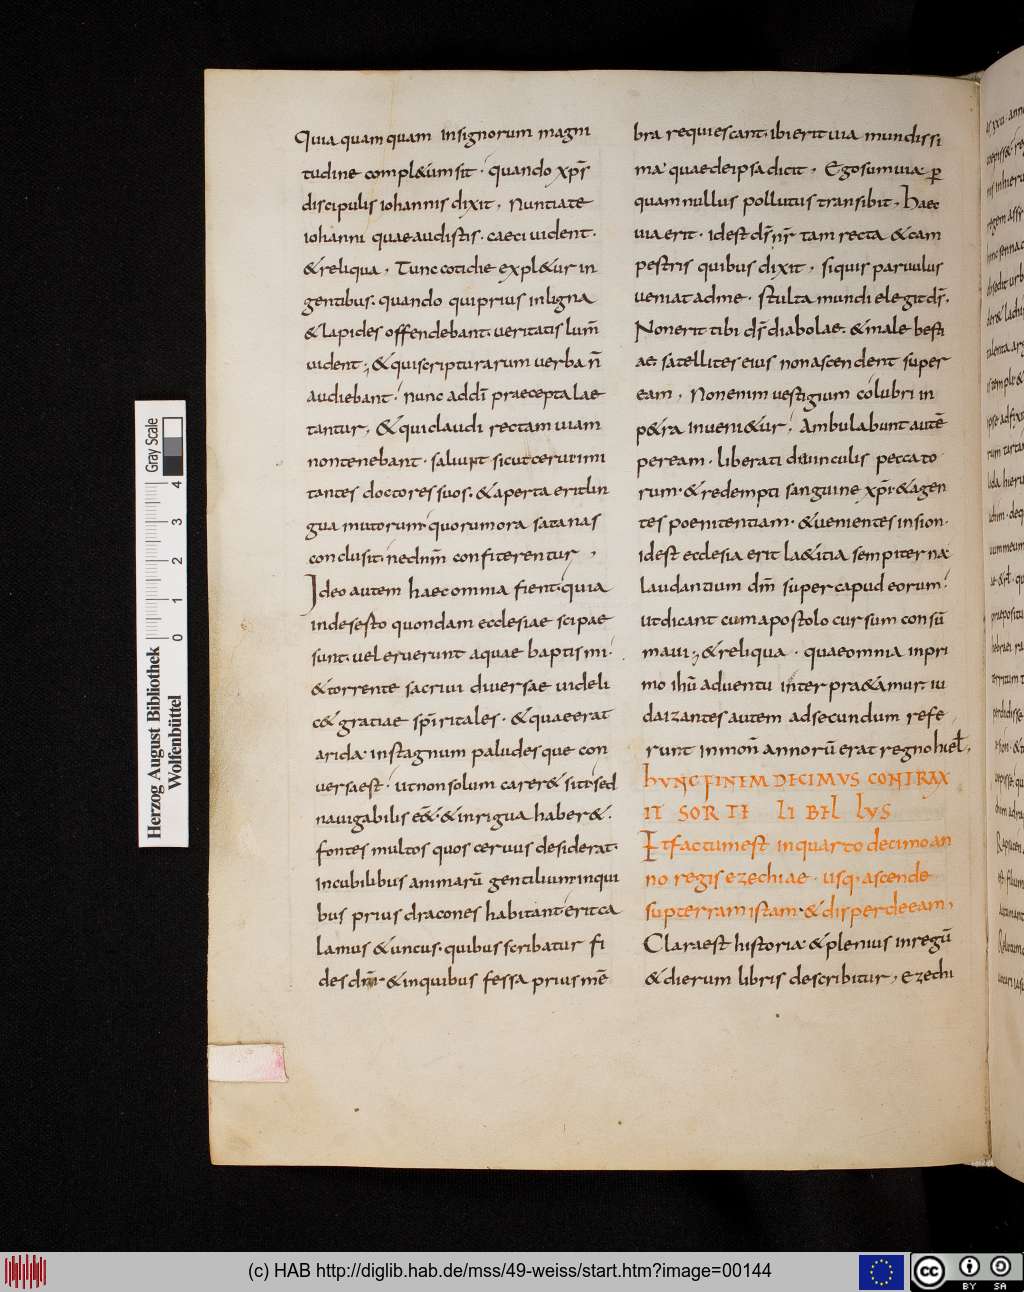 Quia quam quam insignorum magni
tudine compl&um sit · quando xp̄s
discipulis iohannis dixit , Nuntiate
iohanni quae audistis · caeci uident ·
& reliqua , Tunc cotidie expl&ur in
gentibus · quando qui prius in ligna
& lapides offendebant · ueritatis lum̄
uident ; & qui scripturarum uerba n̄
audiebant ! nunc addī praecepta lae
tantur , & qui claudi rectam uiam
non tenebant · saliunt sicut cerui imi
tantes doctores suos · & aperta erit lin
gua mutorum quorum ora satanas
conclusit · ne dn̄m confiterentur ,
Ideo autem haec omnia fient · quia
in deserto quondam ecclesiae scipae
sunt · uel eruerunt aquae baptismi ·
& torrente sacriui diuersae uideli
c& gratiae spīritales · & quae erat
arida · in stagnum paludesque con
uersa est · ut non solum carer& siti · sed
nauigabilis ēē& · & inrigua haber& ·
fontes multos quos ceruus desiderat ·
In cubilibus animarū gentilium in qui
bus prius dracones habitant · erit ca
lamus & uncus · quibus scribatur fi
des dn̄i · & in quibus fessa prius mē
bra requiescant · ibi erit uia mundissi
ma · quae de ipsa dicit , Ego sum uia · p̄
quam nullus pollutus transibit , haec
uia erit · id est ds̄ nr̄ tam recta & cam
pestris quibus dixit , si quis paruulus
ueniat ad me · stulta mundi elegit ds̄ ·
Non erit tibi ds̄ diabolae · & male besti
ae · satelliter eius non ascendent super
eam , Non enim uestigium colubri in
p&ra inueni&ur ! Ambulabunt autē
per eam · liberati de uinculis peccato
rum · & redempti sanguine xp̄i · & agen
tes poenitentiam · & uenientes in sion ·
id est ecclesia erit la&itia sempiterna ·
laudantium dn̄m super capud eorum !
ut dicant cum apostolo cursum consū
maui ; & reliqua · quae omnia in pri
mo ih̄u aduentu interpra&amur · iu
daizantes autem ad secundum refe
runt in mon̄ annorū erat regno hieƚ ,
hVNC FINEM DECIMVS CONTRAX
IT SORTE LIBELLVS
Et factum est in quarto decimo an
no regis ezechiae · usq · ascende
sup terram istam · & disperde eam ,
Clara est historia · & plenius in regū
& dierum libris describitur , Ezechi
Herzog August Bibliothek
Wolfenbüttel
Gray Scale
0 1 2 3 4
(c) HAB http://diglib.hab.de/mss/49-weiss/start.htm?image=00144
CC BY SA